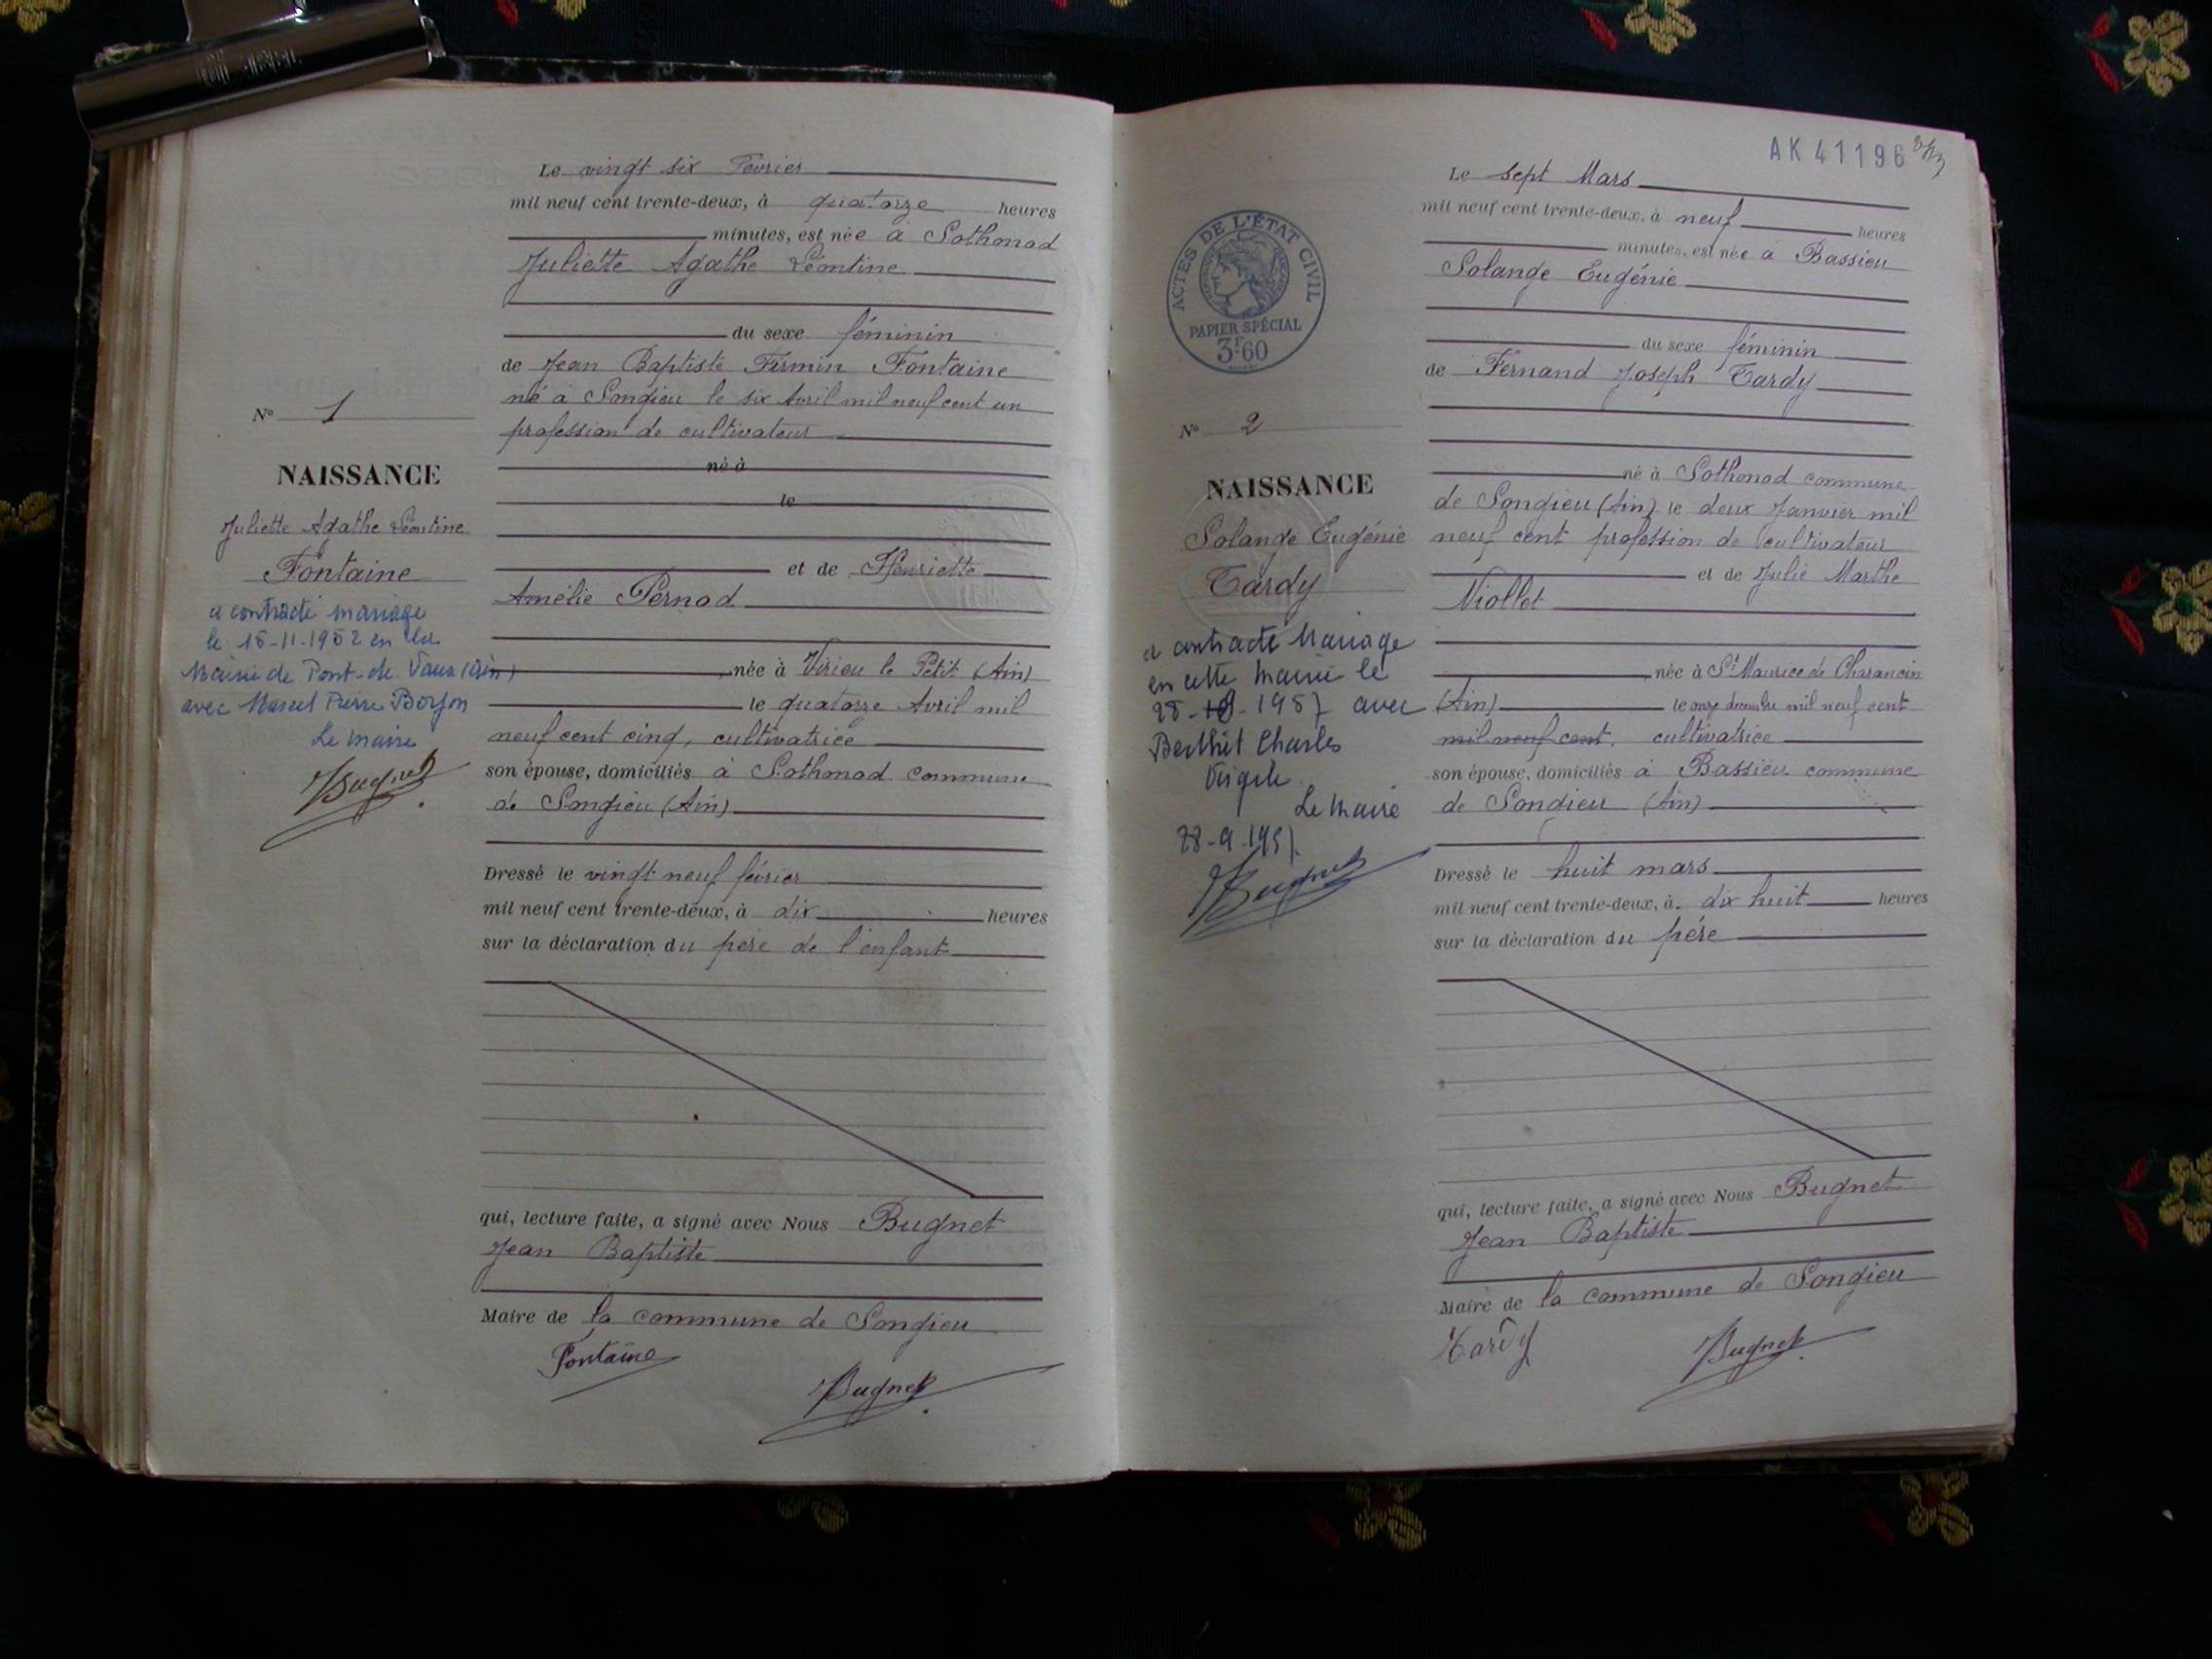 Le vingt six Février
mil neuf cent trente-deux, à quatorze heures
minutes, est née à Sothonod
Juliette Agathe Léontine
du sexe féminin
de Jean Baptiste Firmin Fontaine
né à Songieu le six Avril mil neuf cent un
profession de cultivateur
né à
le
et de Henriette
Amélie Pernod
née à Virieu le Petit (Ain)
le quatorze Avril mil
neuf cent cinq, cultivatrice
son épouse, domiciliés à Sothonod commune
de Songieu (Ain)
Dressé le vingt neuf février
mil neuf cent trente-deux, à dix heures
sur la déclaration du père de l'enfant
qui, lecture faite, a signé avec Nous Bugnet
Jean Baptiste
Maire de la commune de Songieu
Fontaine
Bugnet
N° 1
NAISSANCE
Juliette Agathe Léontine
Fontaine
a contracté mariage
le 15-11-1952 en la
Mairie de Pont-de Vaux (Ain)
avec Marcel Pierre
Le Maire
Bugnet
AK 41196
ACTES DE L'ÉTAT CIVIL
PAPIER SPÉCIAL
3F60
N° 2
NAISSANCE
Solange Eugénie
Tardy
a contracté Mariage
en cette Mairie le
28- -1957 avec
Berthet Charles
Virgile
Le Maire
28-9-1957
Bugnet
Le sept Mars
mil neuf cent trente-deux, à neuf heures
minutes, est née à Bassieu
Solange Eugénie
du sexe féminin
de Fernand Joseph Tardy
né à Sothonod commune
de Songieu (Ain) le deux Janvier mil
neuf cent profession de cultivateur
et de Julie Marthe
Niollet
née à St Maurice de Charancin
(Ain) le onze décembre mil neuf cent
mil neuf cent, cultivatrice
son épouse, domiciliés à Bassieu commune
de Songieu (Ain)
Dressé le huit mars
mil neuf cent trente-deux, à dix huit heures
sur la déclaration du père
qui, lecture faite, a signé avec Nous Bugnet
Jean Baptiste
Maire de la commune de Songieu
Tardy
Bugnet